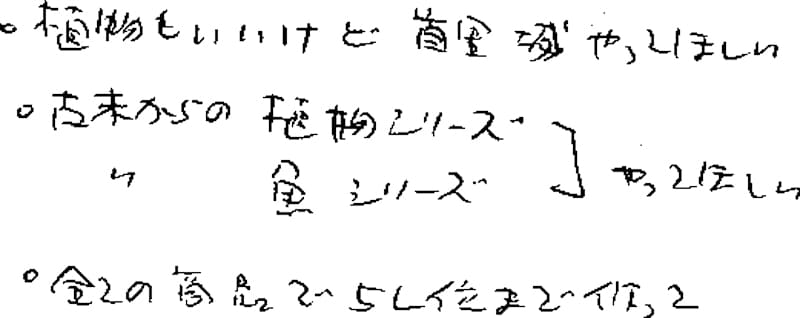 。植物もいいけど首里減やってほしい
。古来からの植物シリーズ
〃 魚シリーズ ］やってほしい
。全ての商品で5L位まで作って